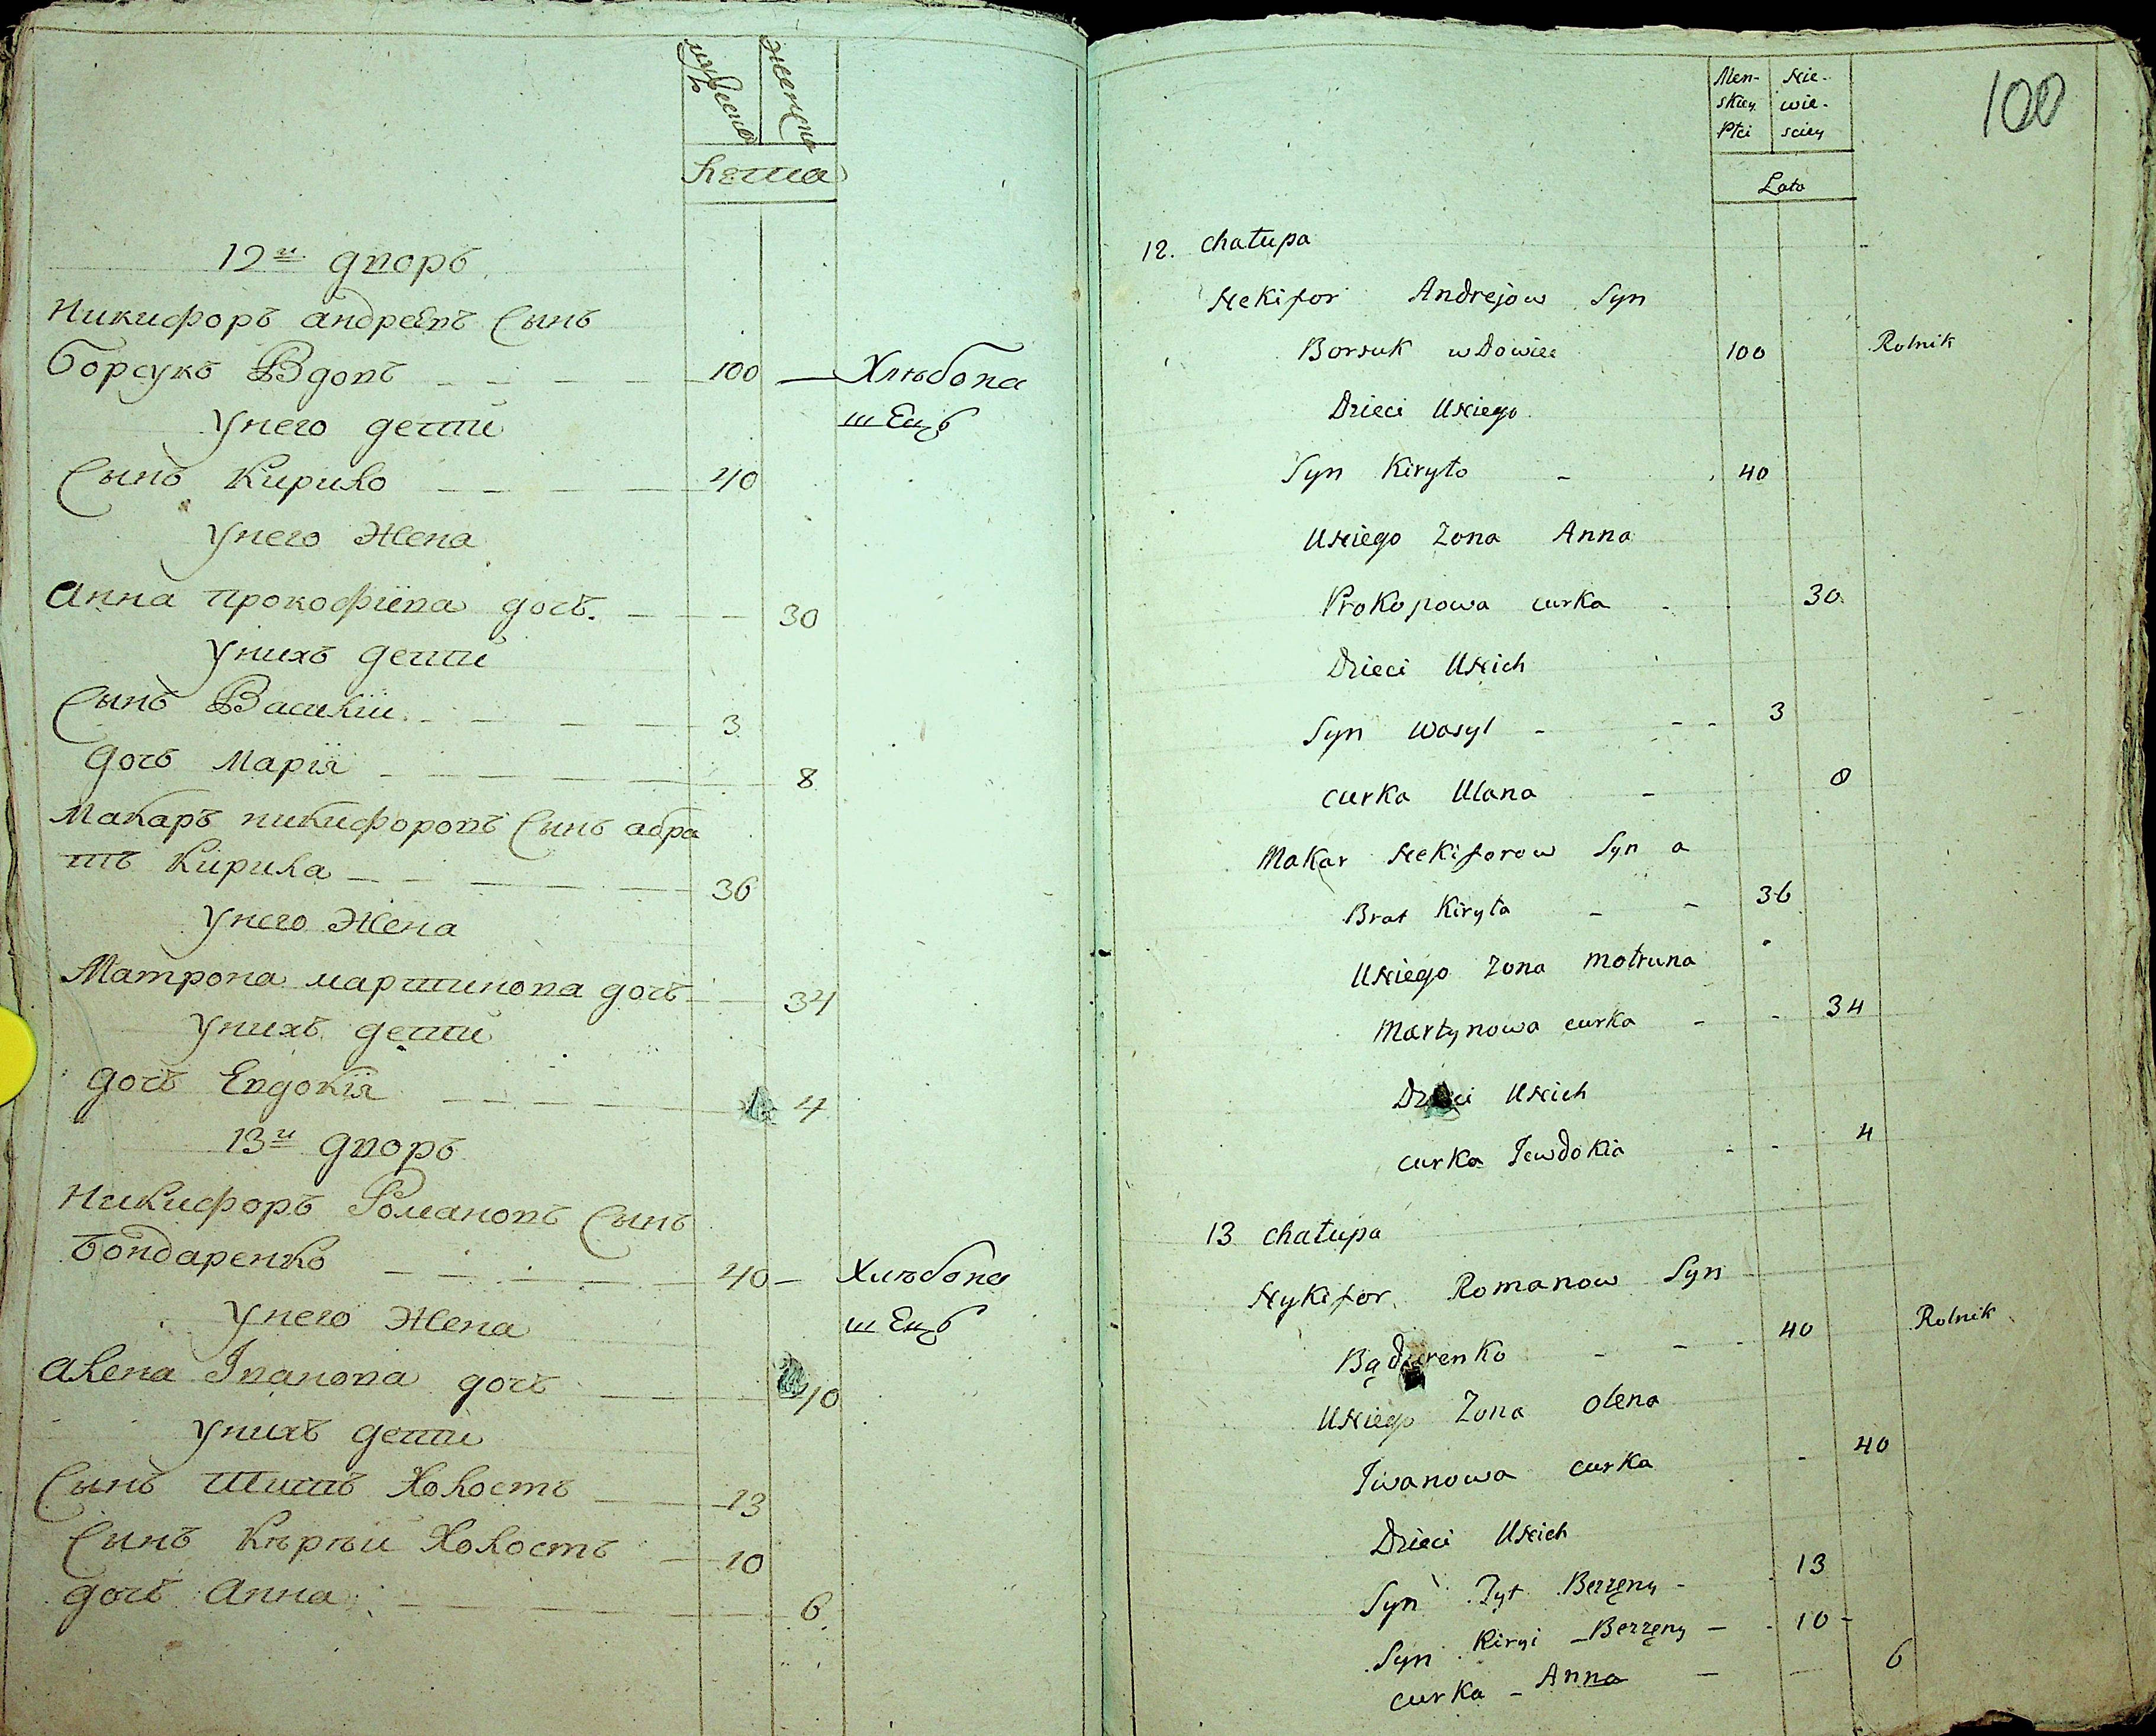 мужеска
женска
лета
12й дворъ
Никифоръ андреевъ Сынъ
Борсукъ Вдовъ 100 Хлѣбопа
шЕцъ
Унего дети
Сынъ Кирило 40
Унего Жена
Анна прокофіева дочь. 30
Унихъ дети
Сынъ Василіи 3
дочь Марія 8
Макаръ никифоровъ Сынъ абра
тъ Кирила 36
Унего Жена
Матрона мартинова дочь 34
Унихъ дети
дочь Евдокія 4
13й дворъ
Никифоръ Романовъ Сынъ
Бондаренко 40 Хлѣбопа
шЕцъ
Унего Жена
алена Іванова дочь 40
Унихъ дети
Сынъ титъ Холостъ 13
Сынъ Кѣрѣи Холостъ 10
дочь Анна 6
100
Men- Nie-
skiey wie-
Płci sciey
Lata
12. chałupa
Nekifor Andrejow Syn
Borsuk wdowiec 100 Rolnik
Dzieci Uniego
Syn Kiryło 40
Uniego Zona Anna
Prokopowa curka 30
Dzieci Unich
Syn Wasyl 3
curka Ulana 8
Makar Nekiforow Syn a
Brat Kiryła 36
Uniego Zona Motruna
Martynowa curka 34
Dzieci Unich
curka Jewdokia 4
13 chałupa
Nykifor Romanow Syn
Bądarenko 40 Rolnik
Uniego Zona Olena
Iwanowa curka 40
Dzieci Unich
Syn Tyt Bezżęny 13
Syn Kiryi Bezżęny 10
curka Anna 6